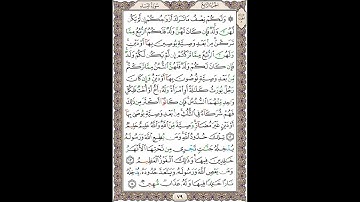 سورة النساء الجزء الرابع
۞ وَلَكُمْ نِصْفُ مَا تَرَكَ أَزْوَاجُكُمْ إِن لَّمْ يَكُن
لَّهُنَّ وَلَدٌ فَإِن كَانَ لَهُنَّ وَلَدٌ فَلَكُمُ الرُّبُعُ مِمَّا
تَرَكْنَ مِن بَعْدِ وَصِيَّةٍ يُوصِينَ بِهَا أَوْ دَيْنٍ
وَلَهُنَّ الرُّبُعُ مِمَّا تَرَكْتُمْ إِن لَّمْ يَكُن لَّكُمْ وَلَدٌ
فَإِن كَانَ لَكُمْ وَلَدٌ فَلَهُنَّ الثُّمُنُ مِمَّا تَرَكْتُم
مِّن بَعْدِ وَصِيَّةٍ تُوصُونَ بِهَا أَوْ دَيْنٍ وَإِن كَانَ
رَجُلٌ يُورَثُ كَلَالَةً أَوِ امْرَأَةٌ وَلَهُ أَخٌ أَوْ أُخْتٌ فَلِكُلِّ
وَاحِدٍ مِّنْهُمَا السُّدُسُ فَإِن كَانُوا أَكْثَرَ مِن ذَٰلِكَ
فَهُمْ شُرَكَاءُ فِي الثُّلُثِ مِن بَعْدِ وَصِيَّةٍ يُوصَىٰ بِهَا
أَوْ دَيْنٍ غَيْرَ مُضَارٍّ وَصِيَّةً مِّنَ اللَّهِ وَاللَّهُ عَلِيمٌ حَلِيمٌ ۝١٢
تِلْكَ حُدُودُ اللَّهِ وَمَن يُطِعِ اللَّهَ وَرَسُولَهُ
يُدْخِلْهُ جَنَّاتٍ تَجْرِي مِن تَحْتِهَا الْأَنْهَارُ
خَالِدِينَ فِيهَا وَذَٰلِكَ الْفَوْزُ الْعَظِيمُ ۝١٣
وَمَن يَعْصِ اللَّهَ وَرَسُولَهُ وَيَتَعَدَّ حُدُودَهُ يُدْخِلْهُ
نَارًا خَالِدًا فِيهَا وَلَهُ عَذَابٌ مُّهِينٌ ۝١٤
٧٩